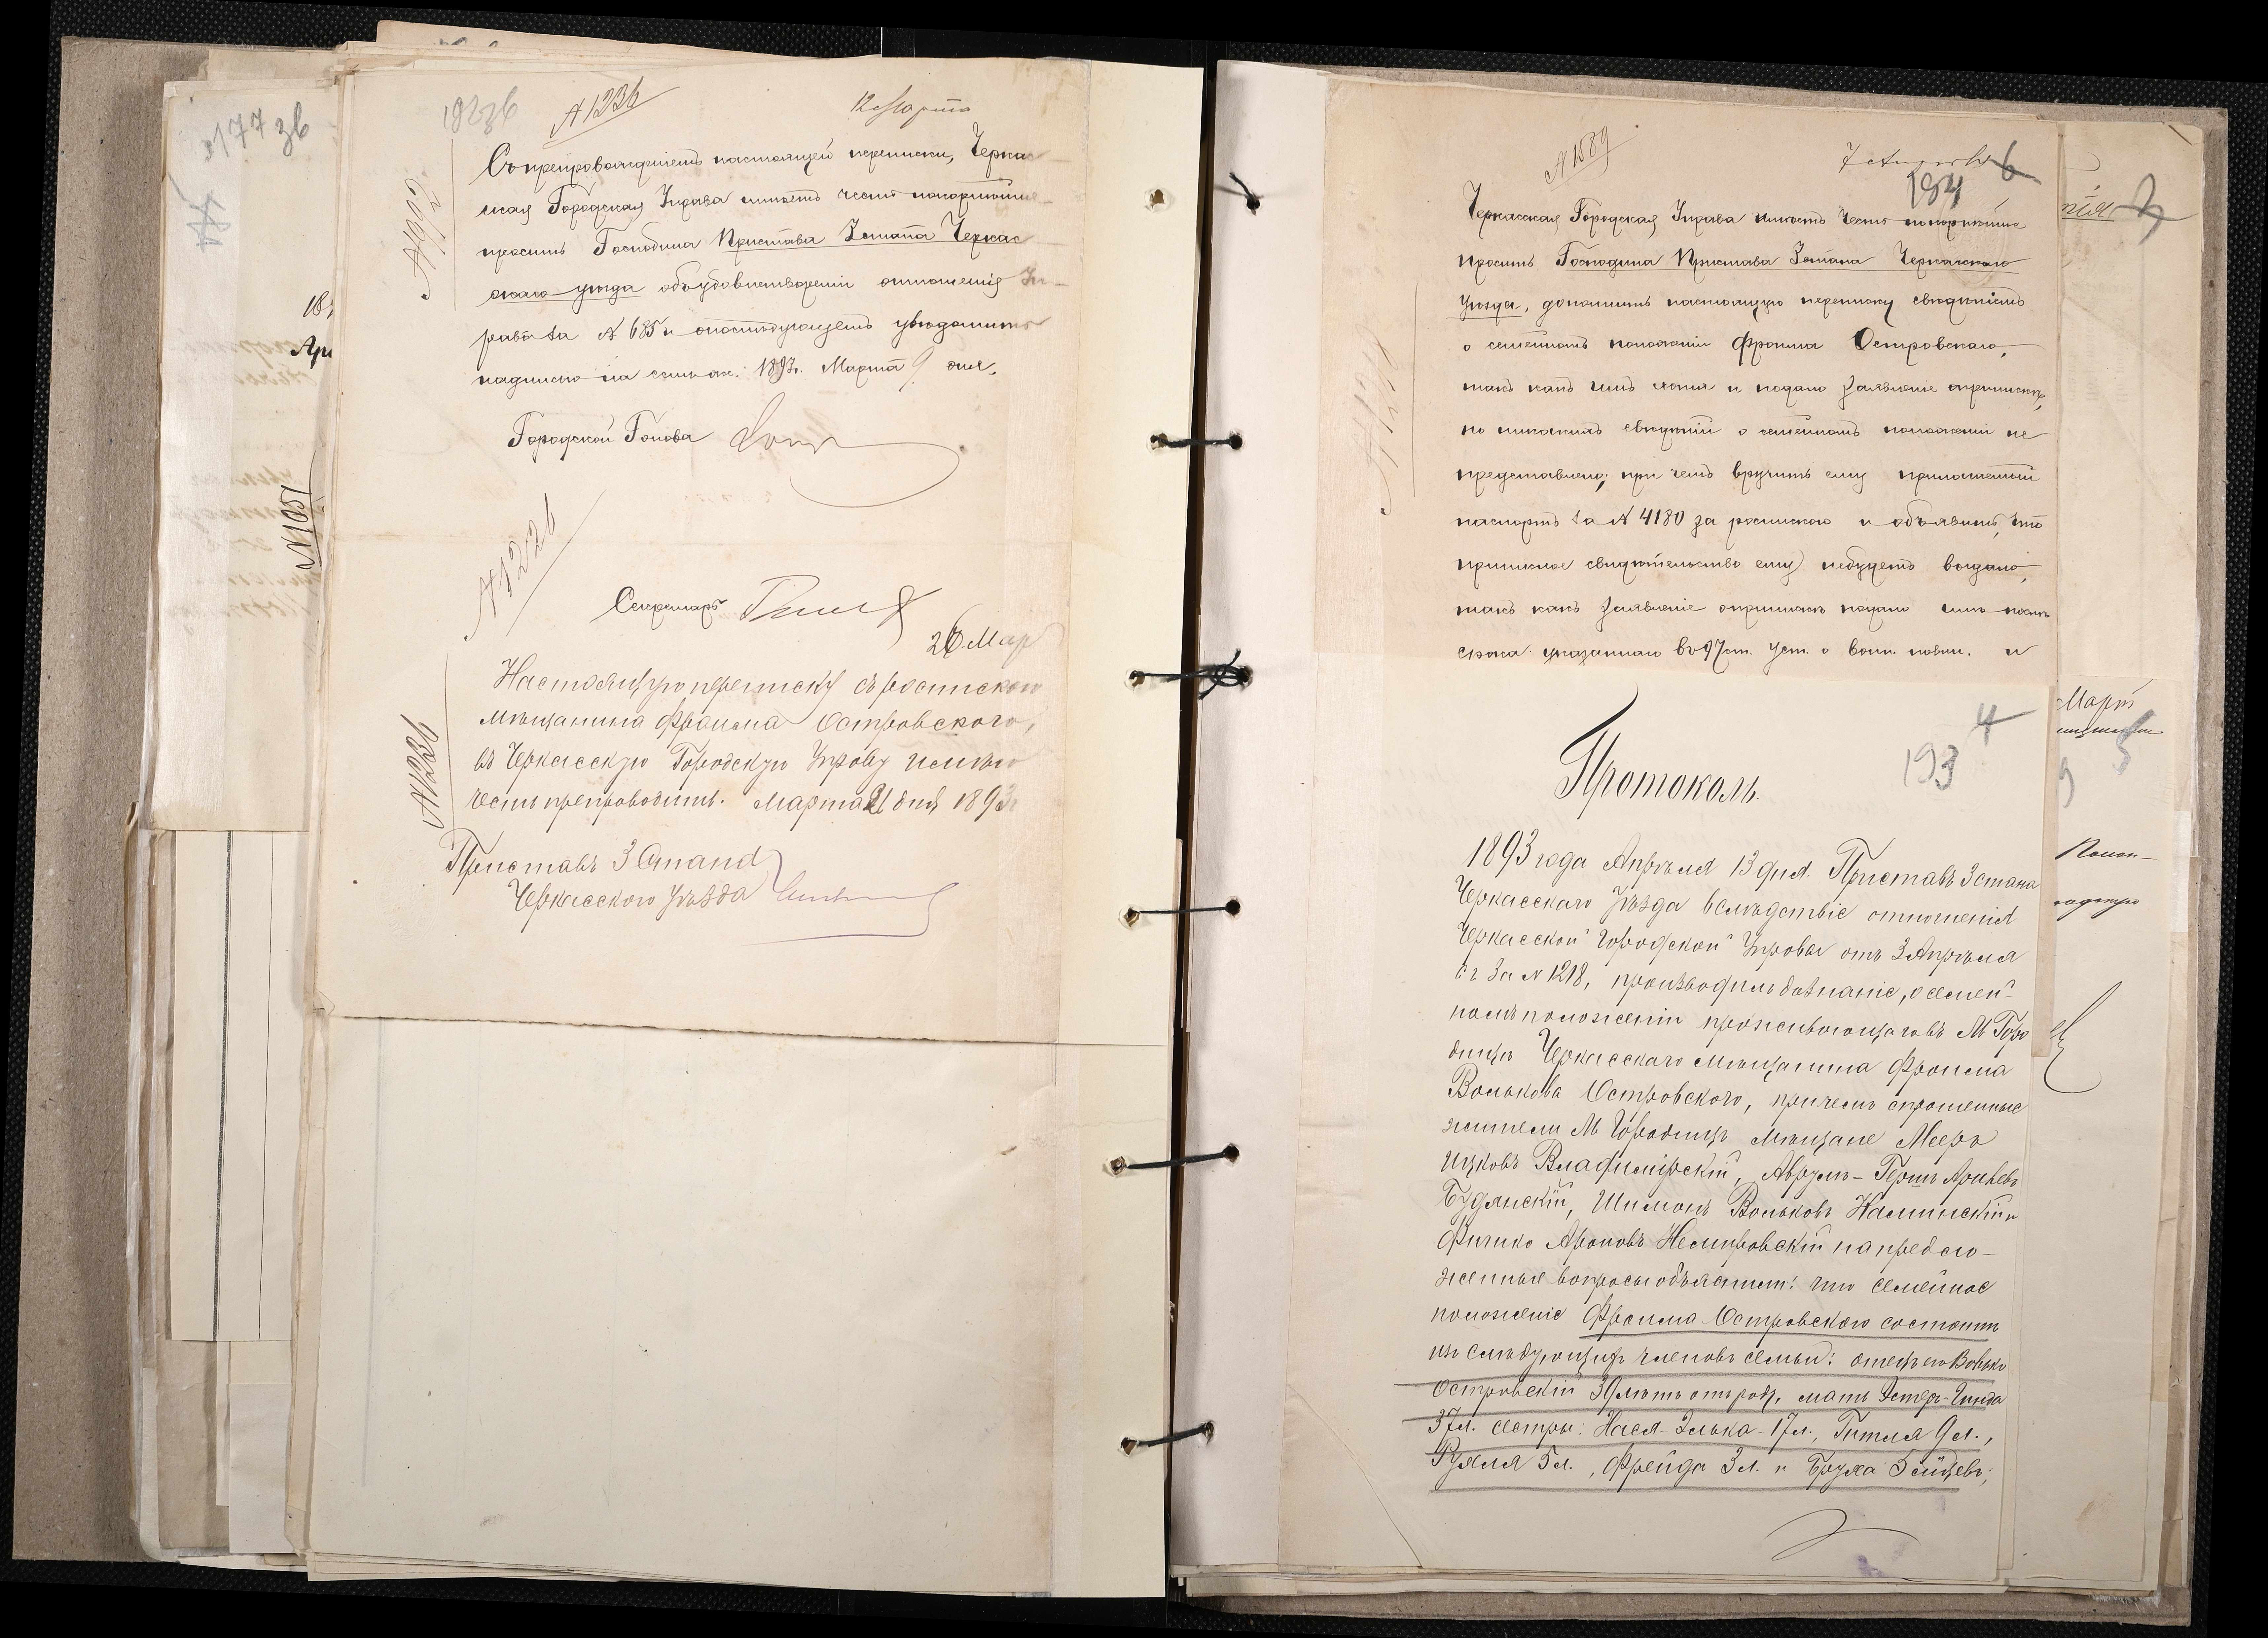 177 зв
№ 1051
192 зв
№ 1236
12 Марта
№ 992
Съ препровожденіемъ настоящей переписки, Черкас-
ская Городская Управа имѣетъ честь покорнѣйше
просить Господина Пристава 3 стана Черкас
скаго уѣзда объ удовлетвореніи отношенія Уп-
равы за № 685 и о послѣдующемъ увѣдомить
надписью на семъ же. 1893 г. Марта 9 дня.
Городской Голова
№ 1221
Секретарь
26 Мар
Настоящую переписку съ роспискою
мѣщанина Фроима Островского,
въ Черкасскую Городскую Управу имѣю
честь препроводить. Марта 21 дня 1893 г
№ 1236
Приставъ 3 Стана
Черкасского Уѣзда
№ 1589
7 Апрѣля
6
194
Черкасская Городская Управа имѣетъ честь покорнѣйше
просить Господина Пристава 3 стана Черкасскаго
уѣзда, дополнить настоящую переписку свѣдѣніемъ
о семейномъ положеніи Фроима Островскаго,
такъ какъ имъ хотя и подано заявленіе о припискѣ,
но никакихъ свѣдѣній о семейномъ положеніи не
представлено; при чемъ вручить ему приложенный
паспортъ за № 4180 за роспискою и объявить, что
приписное свидѣтельство ему не будетъ выдано,
такъ какъ заявленіе о припискѣ подано имъ послѣ
срока указаннаго въ 97 ст. уст. о воин. повин. и
4
193
Протоколъ.
1893 года Апрѣля 13 дня. Приставъ 3 стана
Черкасскаго Уѣзда вслѣдствіе отношенія
Черкасской Городской Управы отъ 3 Апрѣля
с г за № 1218, производилъ дознаніе, о семей-
номъ положеніи проживающаго въ М Горо
дищѣ Черкасскаго мѣщанина Фроима
Волькова Островского, причемъ спрошенные
жители М Городищъ мѣщане Мееръ
Ицковъ Владимірскій, Аврумъ-Гершъ Арьевъ
Будянскій, Шимонъ Вольковъ Каминскій и
Фишко Ароновъ Немировскій на предло-
женные вопросы объяснили: что семейное
положеніе Фроима Островского состоитъ
изъ слѣдующихъ членовъ семьи: отецъ его Волько
Островскій 39 лѣтъ отъ роду, мать Эстеръ-Гинда
37 л. сестры: Нася-Элька-17 л., Гитля 9 л.,
Рухля 5 л., Фрейда 3 л. и Бруха 5 мѣсяцевъ;
Март